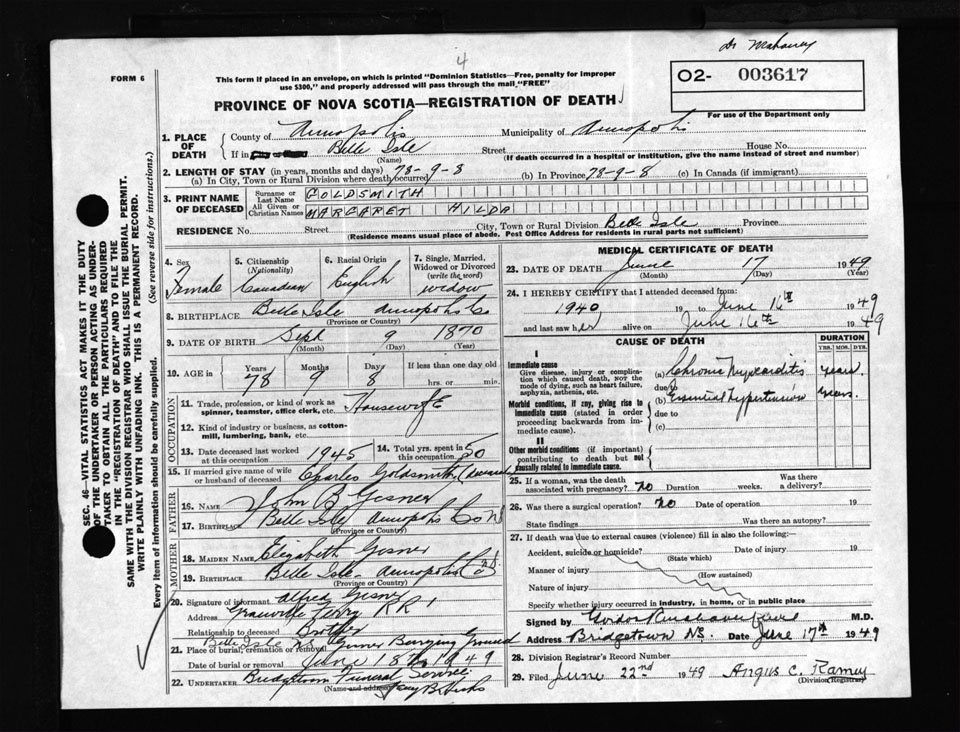 Dr Mahaney
4
FORM 6
This form if placed in an envelope, on which is printed "Dominion Statistics—Free, penalty for improper
use $300," and properly addressed will pass through the mail "FREE"
O2- 003617
For use of the Department only
PROVINCE OF NOVA SCOTIA—REGISTRATION OF DEATH
1. PLACE OF DEATH
County of Annapolis Municipality of Annapolis
If in City or Belle Isle Street House No.
(Name) (If death occurred in a hospital or institution, give the name instead of street and number)
2. LENGTH OF STAY (in years, months and days) 78-9-8
(a) In City, Town or Rural Division where death occurred (b) In Province 78-9-8 (c) In Canada (if immigrant)
3. PRINT NAME OF DECEASED
Surname or Last Name GOLDSMITH
All Given or Christian Names MARGARET HILDA
RESIDENCE No. Street City, Town or Rural Division Belle Isle Province
(Residence means usual place of abode. Post Office Address for residents in rural parts not sufficient)
4. Sex Female
5. Citizenship (Nationality) Canadian
6. Racial Origin English
7. Single, Married, Widowed or Divorced (write the word) widow
8. BIRTHPLACE Belle Isle Annapolis Co
(Province or Country)
9. DATE OF BIRTH Sept 9 1870
(Month) (Day) (Year)
10. AGE in Years Months Days If less than one day old
78 9 8 hrs. or min.
OCCUPATION
11. Trade, profession, or kind of work as spinner, teamster, office clerk, etc. Housewife
12. Kind of industry or business, as cotton-mill, lumbering, bank, etc.
13. Date deceased last worked at this occupation 1945
14. Total yrs. spent in this occupation 50
15. If married give name of wife or husband of deceased Charles Goldsmith (Deceased
FATHER
16. NAME John B Gesner
17. BIRTHPLACE Belle Isle Annapolis Co NS
(Province or Country)
MOTHER
18. MAIDEN NAME Elizabeth Gesner
19. BIRTHPLACE Belle Isle Annapolis Co NS
(Province or Country)
20. Signature of informant Alfred Gesner
Address Granville Ferry RR 1
Relationship to deceased Brother
21. Place of burial, cremation or removal Belle Isle Gesner Burying Ground
Date of burial or removal June 18th 1949
22. UNDERTAKER Bridgetown Funeral Service
(Name and address) B. Hicks
MEDICAL CERTIFICATE OF DEATH
23. DATE OF DEATH June 17 1949
(Month) (Day) (Year)
24. I HEREBY CERTIFY that I attended deceased from:
1940 19 to June 16th 1949
and last saw her alive on June 16th 1949
CAUSE OF DEATH
DURATION
YRS. MOS. DYS.
I
Immediate cause
Give disease, injury or complication which caused death, NOT the mode of dying, such as heart failure, asphyxia, asthenia, etc.
(a) Chronic Myocarditis years
due to
Morbid conditions, if any, giving rise to immediate cause (stated in order proceeding backwards from immediate cause).
(b) Essential hypertension years.
due to
(c)
II
Other morbid conditions (if important) contributing to death but not causally related to immediate cause.
25. If a woman, was the death associated with pregnancy? no Duration weeks. Was there a delivery?
26. Was there a surgical operation? no Date of operation 19
State findings Was there an autopsy?
27. If death was due to external causes (violence) fill in also the following:
Accident, suicide or homicide? Date of injury 19
(State which)
Manner of injury
(How sustained)
Nature of injury
Specify whether injury occurred in industry, in home, or in public place
Signed by M.D.
Address Bridgetown NS. Date June 17th 1949
28. Division Registrar's Record Number
29. Filed June 22nd 1949 Angus C. Ramey
(Division Registrar)
SEC. 46—VITAL STATISTICS ACT MAKES IT THE DUTY
OF THE UNDERTAKER OR PERSON ACTING AS UNDER-
TAKER TO OBTAIN ALL THE PARTICULARS REQUIRED
IN THE "REGISTRATION OF DEATH" AND TO FILE THE
SAME WITH THE DIVISION REGISTRAR WHO SHALL ISSUE THE BURIAL PERMIT.
WRITE PLAINLY WITH UNFADING INK. THIS IS A PERMANENT RECORD.
Every item of information should be carefully supplied. (See reverse side for instructions.)